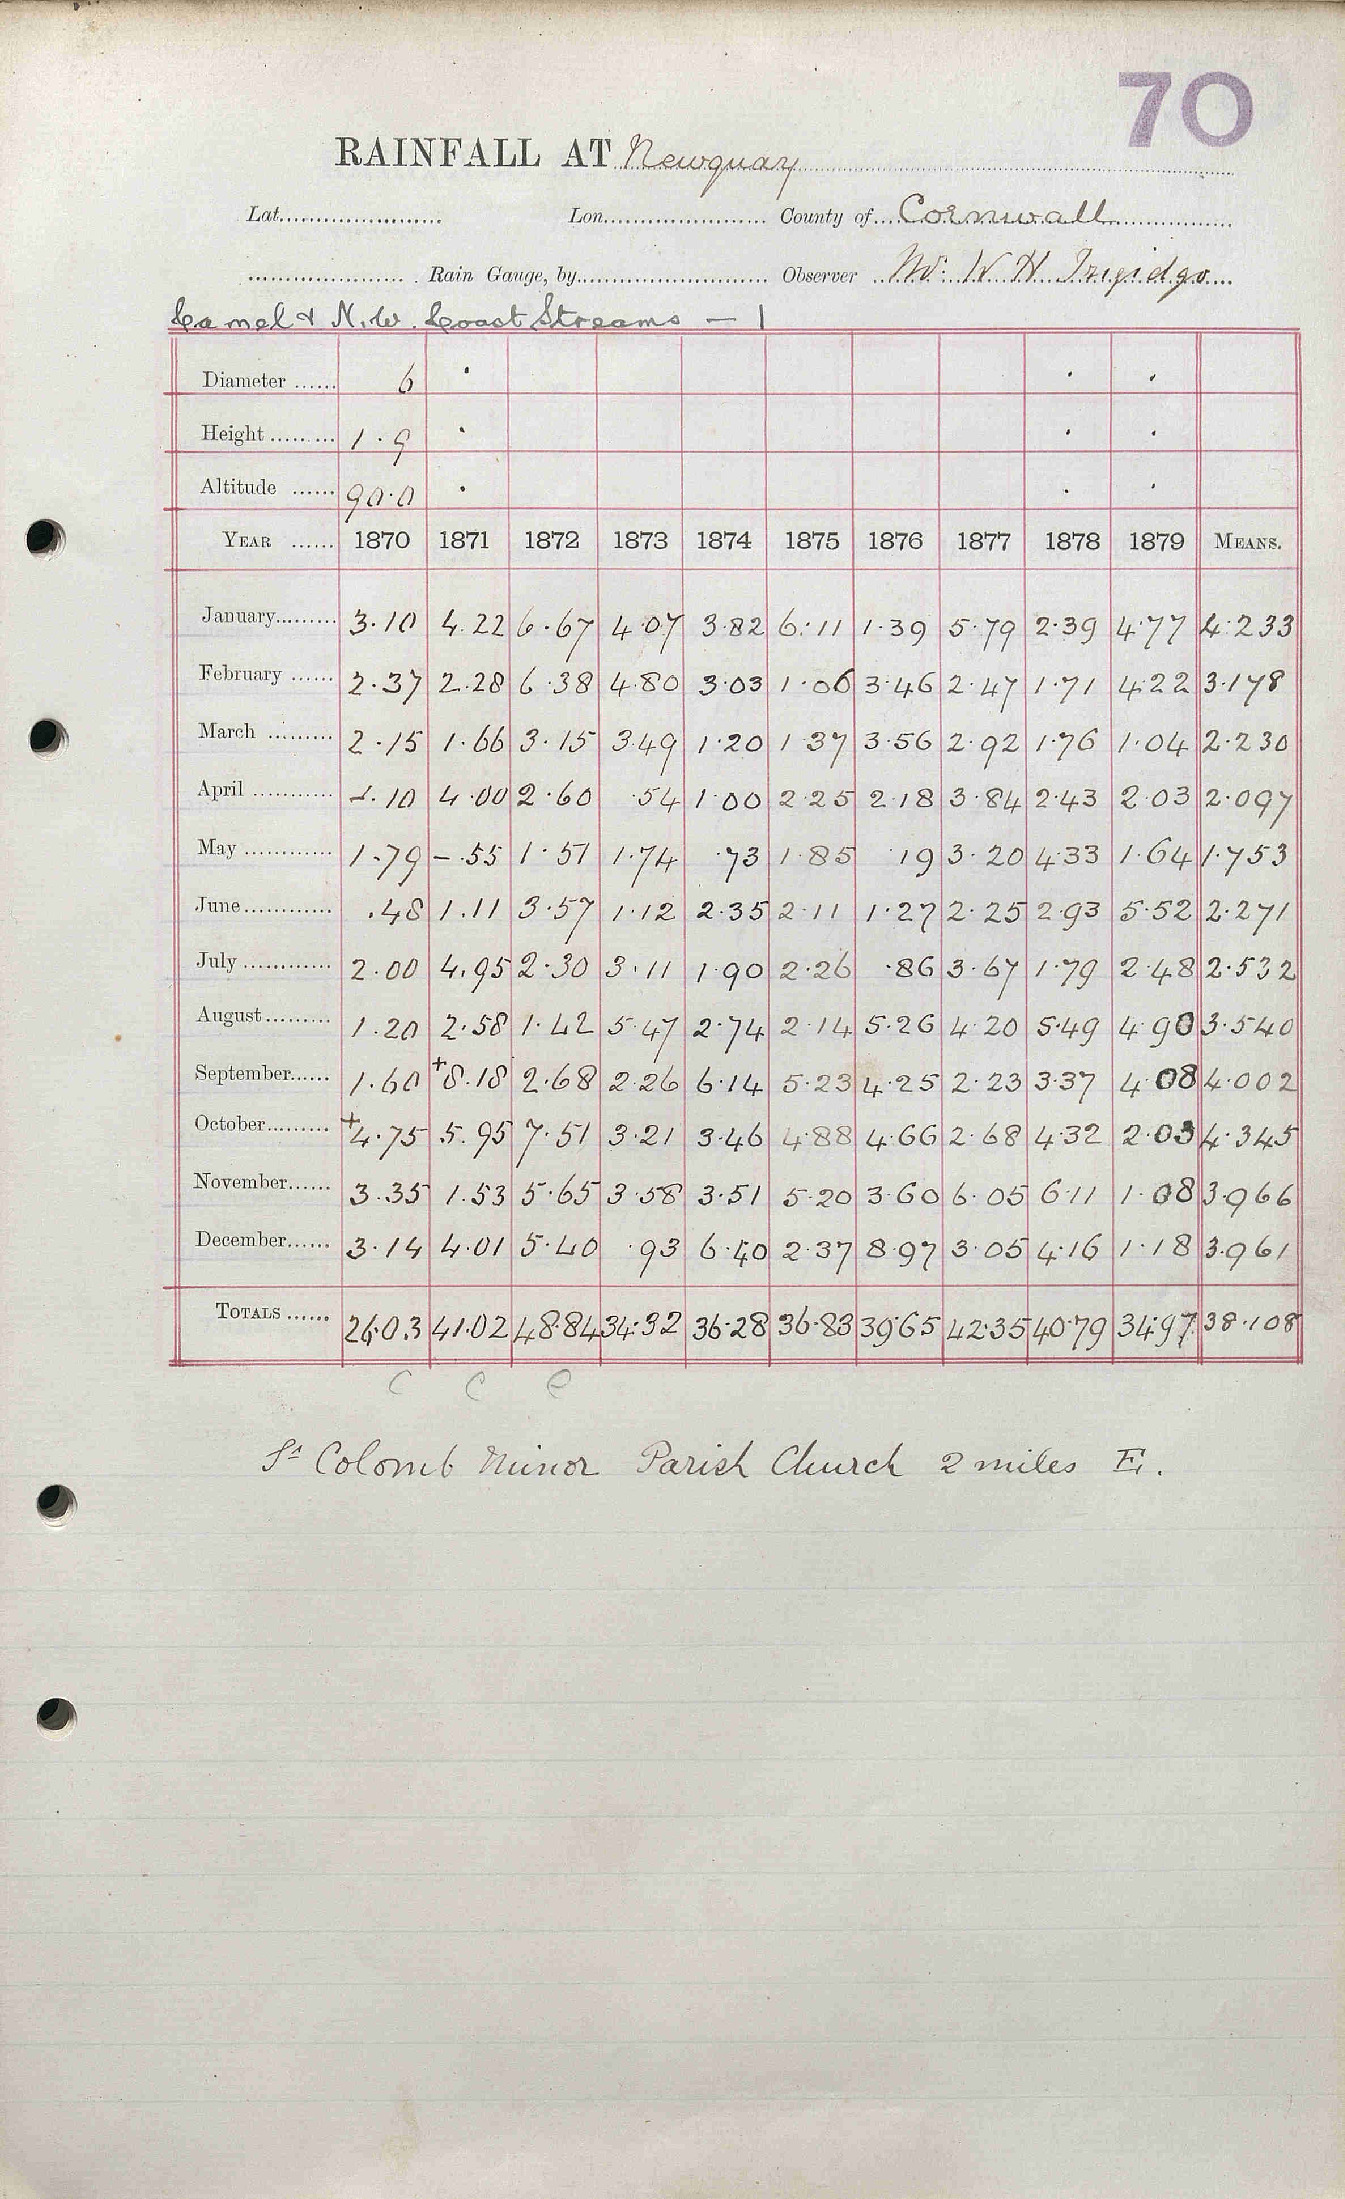 70
RAINFALL AT Newquay
Lat. Lon. County of Cornwall
Rain Gauge, by Observer Mr. W H
Camel & N.W. Coast Streams – 1
Diameter 6 · · ·
Height 1·9 · · ·
Altitude 90·0 · · ·
YEAR 1870 1871 1872 1873 1874 1875 1876 1877 1878 1879 MEANS.
January 3·10 4.22 6·67 4·07 3·82 6·11 1·39 5·79 2·39 4·77 4·233
February 2·37 2.28 6·38 4·80 3·03 1·06 3·46 2·47 1·71 4·22 3·178
March 2·15 1·66 3·15 3·49 1·20 1·37 3·56 2·92 1·76 1·04 2·230
April ·10 4·00 2·60 ·54 1·00 2·25 2·18 3·84 2·43 2·03 2·097
May 1·79 – .55 1·51 1·74 ·73 1·85 ·19 3·20 4·33 1·64 1·753
June .48 1.11 3·57 1·12 2·35 2·11 1·27 2·25 2·93 5·52 2·271
July 2·00 4.95 2·30 3·11 1·90 2·26 ·86 3·67 1·79 2·48 2·532
August 1·20 2·58 1·42 5·47 2·74 2·14 5·26 4·20 5·49 4·90 3·540
September 1·60 +8.18 2·68 2·26 6·14 5·23 4·25 2·23 3·37 4·08 4·002
October +4·75 5.95 7·51 3·21 3·46 4·88 4·66 2·68 4·32 2·03 4·345
November 3.35 1.53 5·65 3·58 3·51 5·20 3·60 6·05 6·11 1·08 3·966
December 3·14 4·01 5·40 ·93 6·40 2·37 8·97 3·05 4·16 1·18 3·961
TOTALS 26·03 41·02 48·84 34·32 36·28 36·83 39·65 42·35 40·79 34·97 38·108
C C C
St Colomb Minor Parish Church 2 miles E.